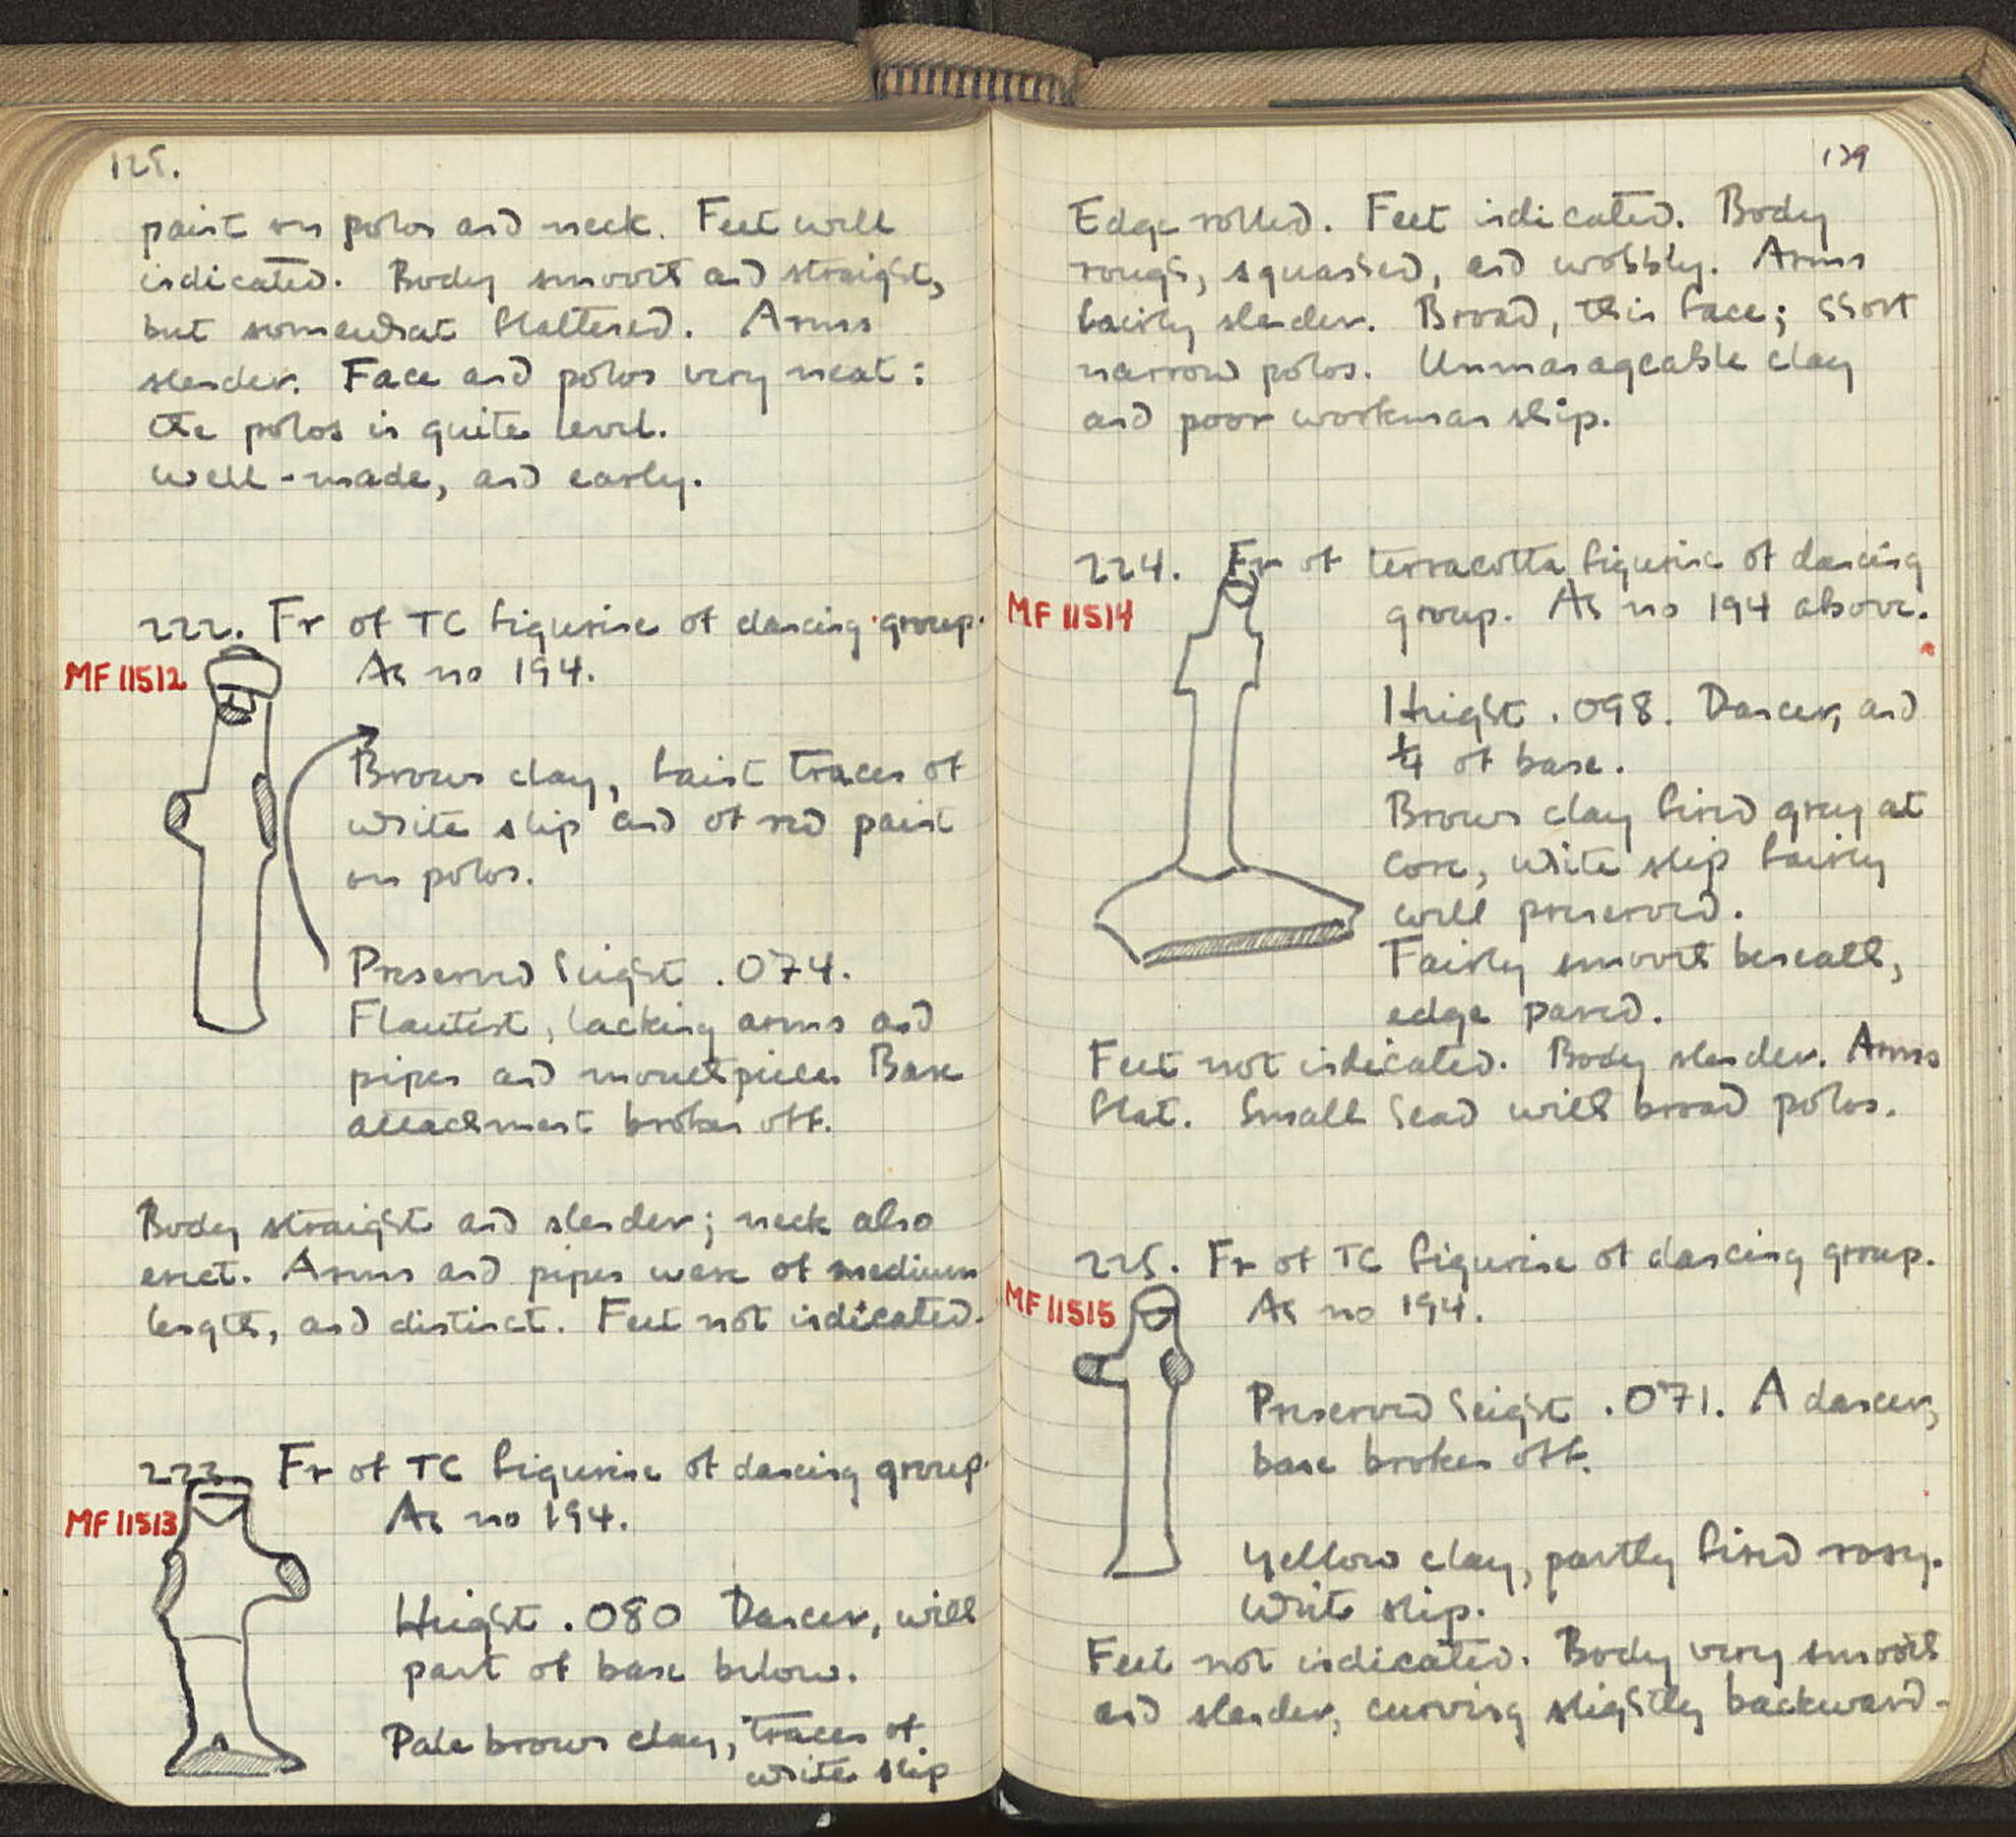 128.
paint on polos and neck. Feet well
indicated. Body smooth and straight,
but somewhat flattened. Arms
slender. Face and polos very neat:
the polos is quite level.
Well-made, and early.
222. Fr of TC figurine of dancing group.
MF 11512
As no 194.
Brown clay, faint traces of
white slip and of red paint
on polos.
Preserved height .074.
Flautist, lacking arms and
pipes and mouthpiece. Base
attachment broken off.
Body straight and slender; neck also
erect. Arms and pipes were of medium
length, and distinct. Feet not indicated.
223. Fr of TC figurine of dancing group.
MF 11513
As no 194.
Height .080 Dancer, with
part of base below.
Pale brown clay, traces of
white slip
129
Edge rolled. Feet indicated. Body
rough, squashed, and wobbly. Arms
fairly slender. Broad, thin face; short
narrow polos. Unmanageable clay
and poor workmanship.
224. Fr of terracotta figurine of dancing
MF 11514
group. As no 194 above.
Height .098. Dancer, and
1/4 of base.
Brown clay fired grey at
core, white slip fairly
well preserved.
Fairly smooth beneath,
edge pared.
Feet not indicated. Body slender. Arms
flat. Small head with broad polos.
225. Fr of TC figurine of dancing group.
MF 11515
As no 194.
Preserved height .071. A dancer,
base broken off.
Yellow clay, partly fired rosy.
White slip.
Feet not indicated. Body very smooth
and slender, curving slightly backward-